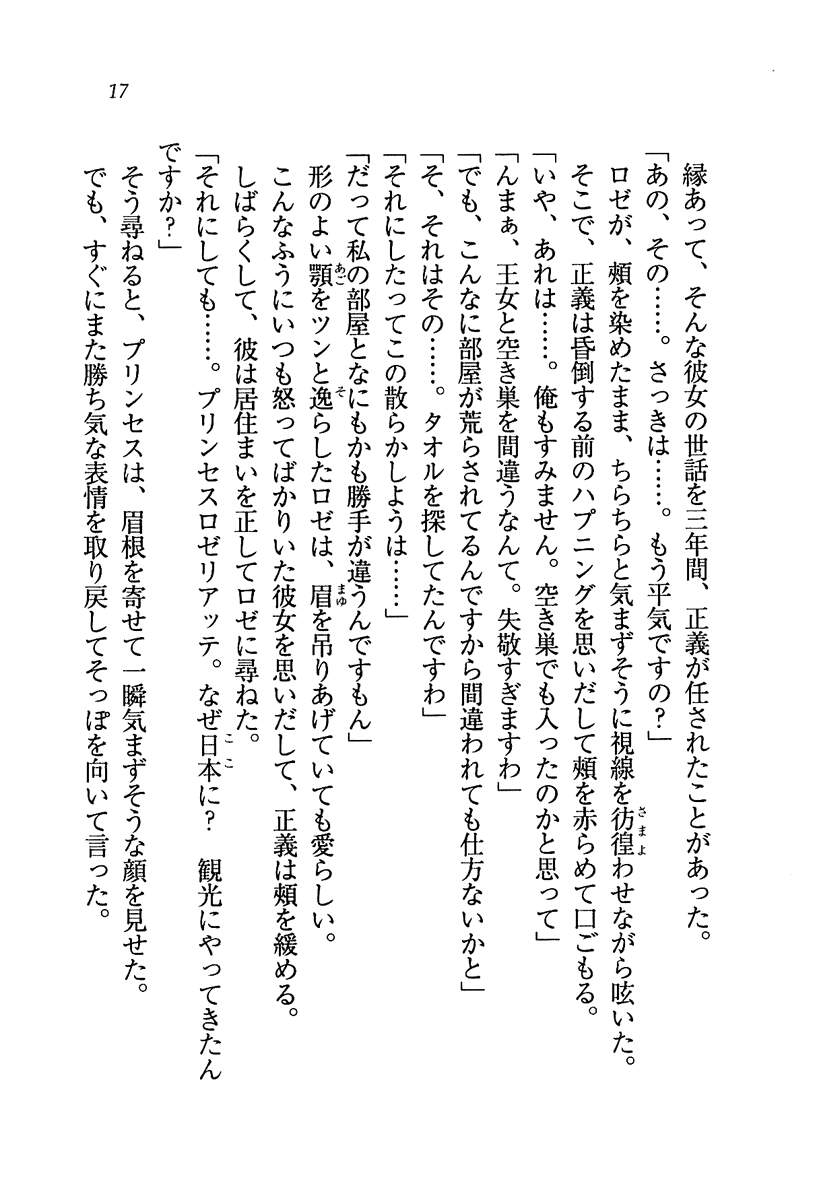 17
縁あって、そんな彼女の世話を三年間、正義が任されたことがあった。
「あの、その……。さっきは……。もう平気ですの？」
ロゼが、頰を染めたまま、ちらちらと気まずそうに視線を彷徨わせながら呟いた。
そこで、正義は昏倒する前のハプニングを思いだして頰を赤らめて口ごもる。
「いや、あれは……。俺もすみません。空き巣でも入ったのかと思って」
「んまぁ、王女と空き巣を間違うなんて。失敬すぎますわ」
「でも、こんなに部屋が荒らされてるんですから間違われても仕方ないかと」
「そ、それはその……。タオルを探してたんですわ」
「それにしたってこの散らかしようは……」
「だって私の部屋となにもかも勝手が違うんですもん」
形のよい顎をツンと逸らしたロゼは、眉を吊りあげていても愛らしい。
こんなふうにいつも怒ってばかりいた彼女を思いだして、正義は頰を緩める。
しばらくして、彼は居住まいを正してロゼに尋ねた。
「それにしても……。プリンセスロゼリアッテ。なぜ日本に？　観光にやってきたん
ですか？」
そう尋ねると、プリンセスは、眉根を寄せて一瞬気まずそうな顔を見せた。
でも、すぐにまた勝ち気な表情を取り戻してそっぽを向いて言った。